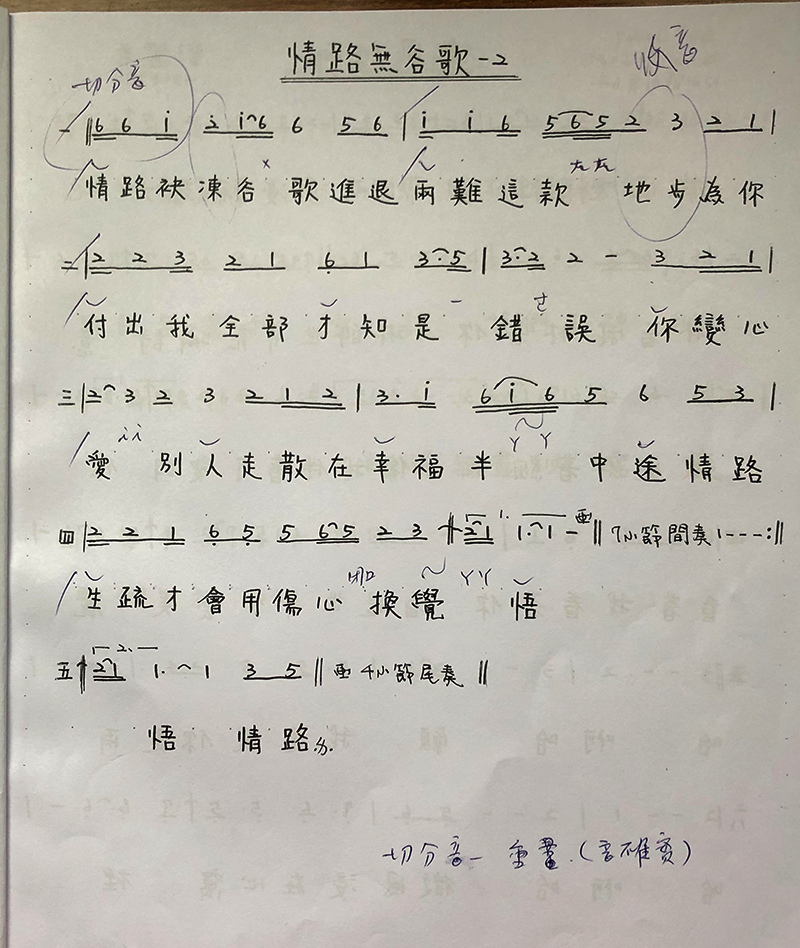 情路無谷歌-2
切分音 收音
一 ‖6 6 i 2 i 6 6 5 6 | i i 6 5 6 5 2 3 2 1 |
情路袂凍谷歌進退兩難這款 地步為你
二 | 2 2 3 2 1 6 1 3·5 | 3·2 2 - 3 2 1 |
付出我全部才知是 錯誤 你變心
三 | 2 3 2 3 2 1 2 | 3· i 6 i 6 5 6 5 3 |
愛 別人走散在幸福半 中途情路
四 | 2 2 1 6 5 5 6 5 2 3 | 2 1 1· 1 - ‖ 7小節間奏 1---:‖
生疏才會用傷心換覺 悟
五 | 2 1 1· 1 3 5 ‖ 4小節尾奏 ‖
悟 情路
切分音-